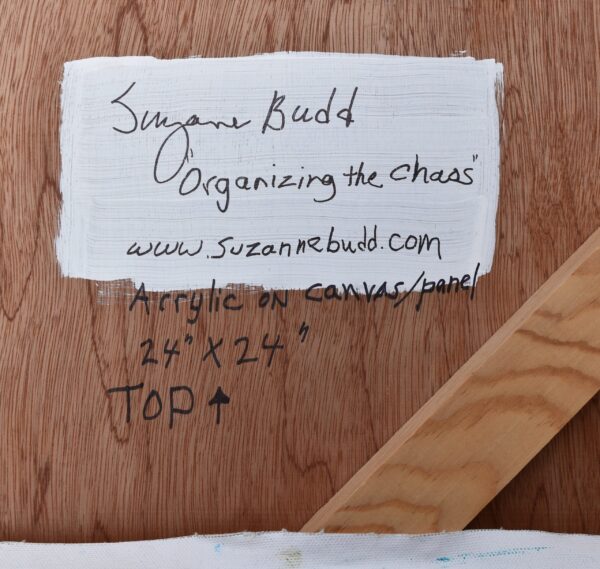 Suzanne Budd
"Organizing the Chaos"
www.suzannebudd.com
Acrylic on canvas/panel
24" X 24"
TOP ↑